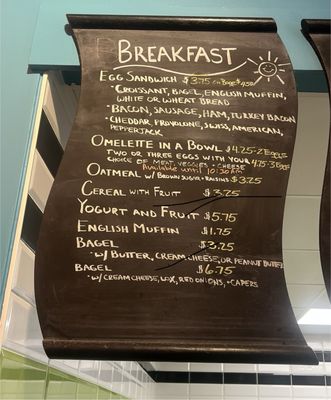 BREAKFAST
EGG SANDWICH $3.75 on Bagel $4.50
• CROISSANT, BAGEL, ENGLISH MUFFIN,
WHITE OR WHEAT BREAD
• BACON, SAUSAGE, HAM, TURKEY BACON
• CHEDDAR, PROVOLONE, SWISS, AMERICAN,
PEPPERJACK
OMELETTE IN A BOWL $4.25-2 Eggs
TWO OR THREE EGGS WITH YOUR 4.75-3 Eggs
CHOICE OF MEAT, VEGGIES + CHEESE
Available until 10:30AM
OATMEAL W/ BROWN SUGAR + RAISINS $3.25
CEREAL WITH FRUIT $3.25
YOGURT AND FRUIT $5.75
ENGLISH MUFFIN $1.75
BAGEL $3.25
• W/ BUTTER, CREAM CHEESE, OR PEANUT BUTTER
BAGEL $6.75
• W/ CREAM CHEESE, LOX, RED ONIONS, + CAPERS